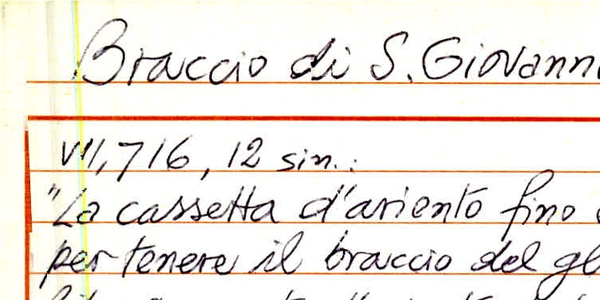 Braccio di S. Giovanni
VII, 716, 12 sin.:
"La cassetta d'ariento fino
per tenere il braccio del gl